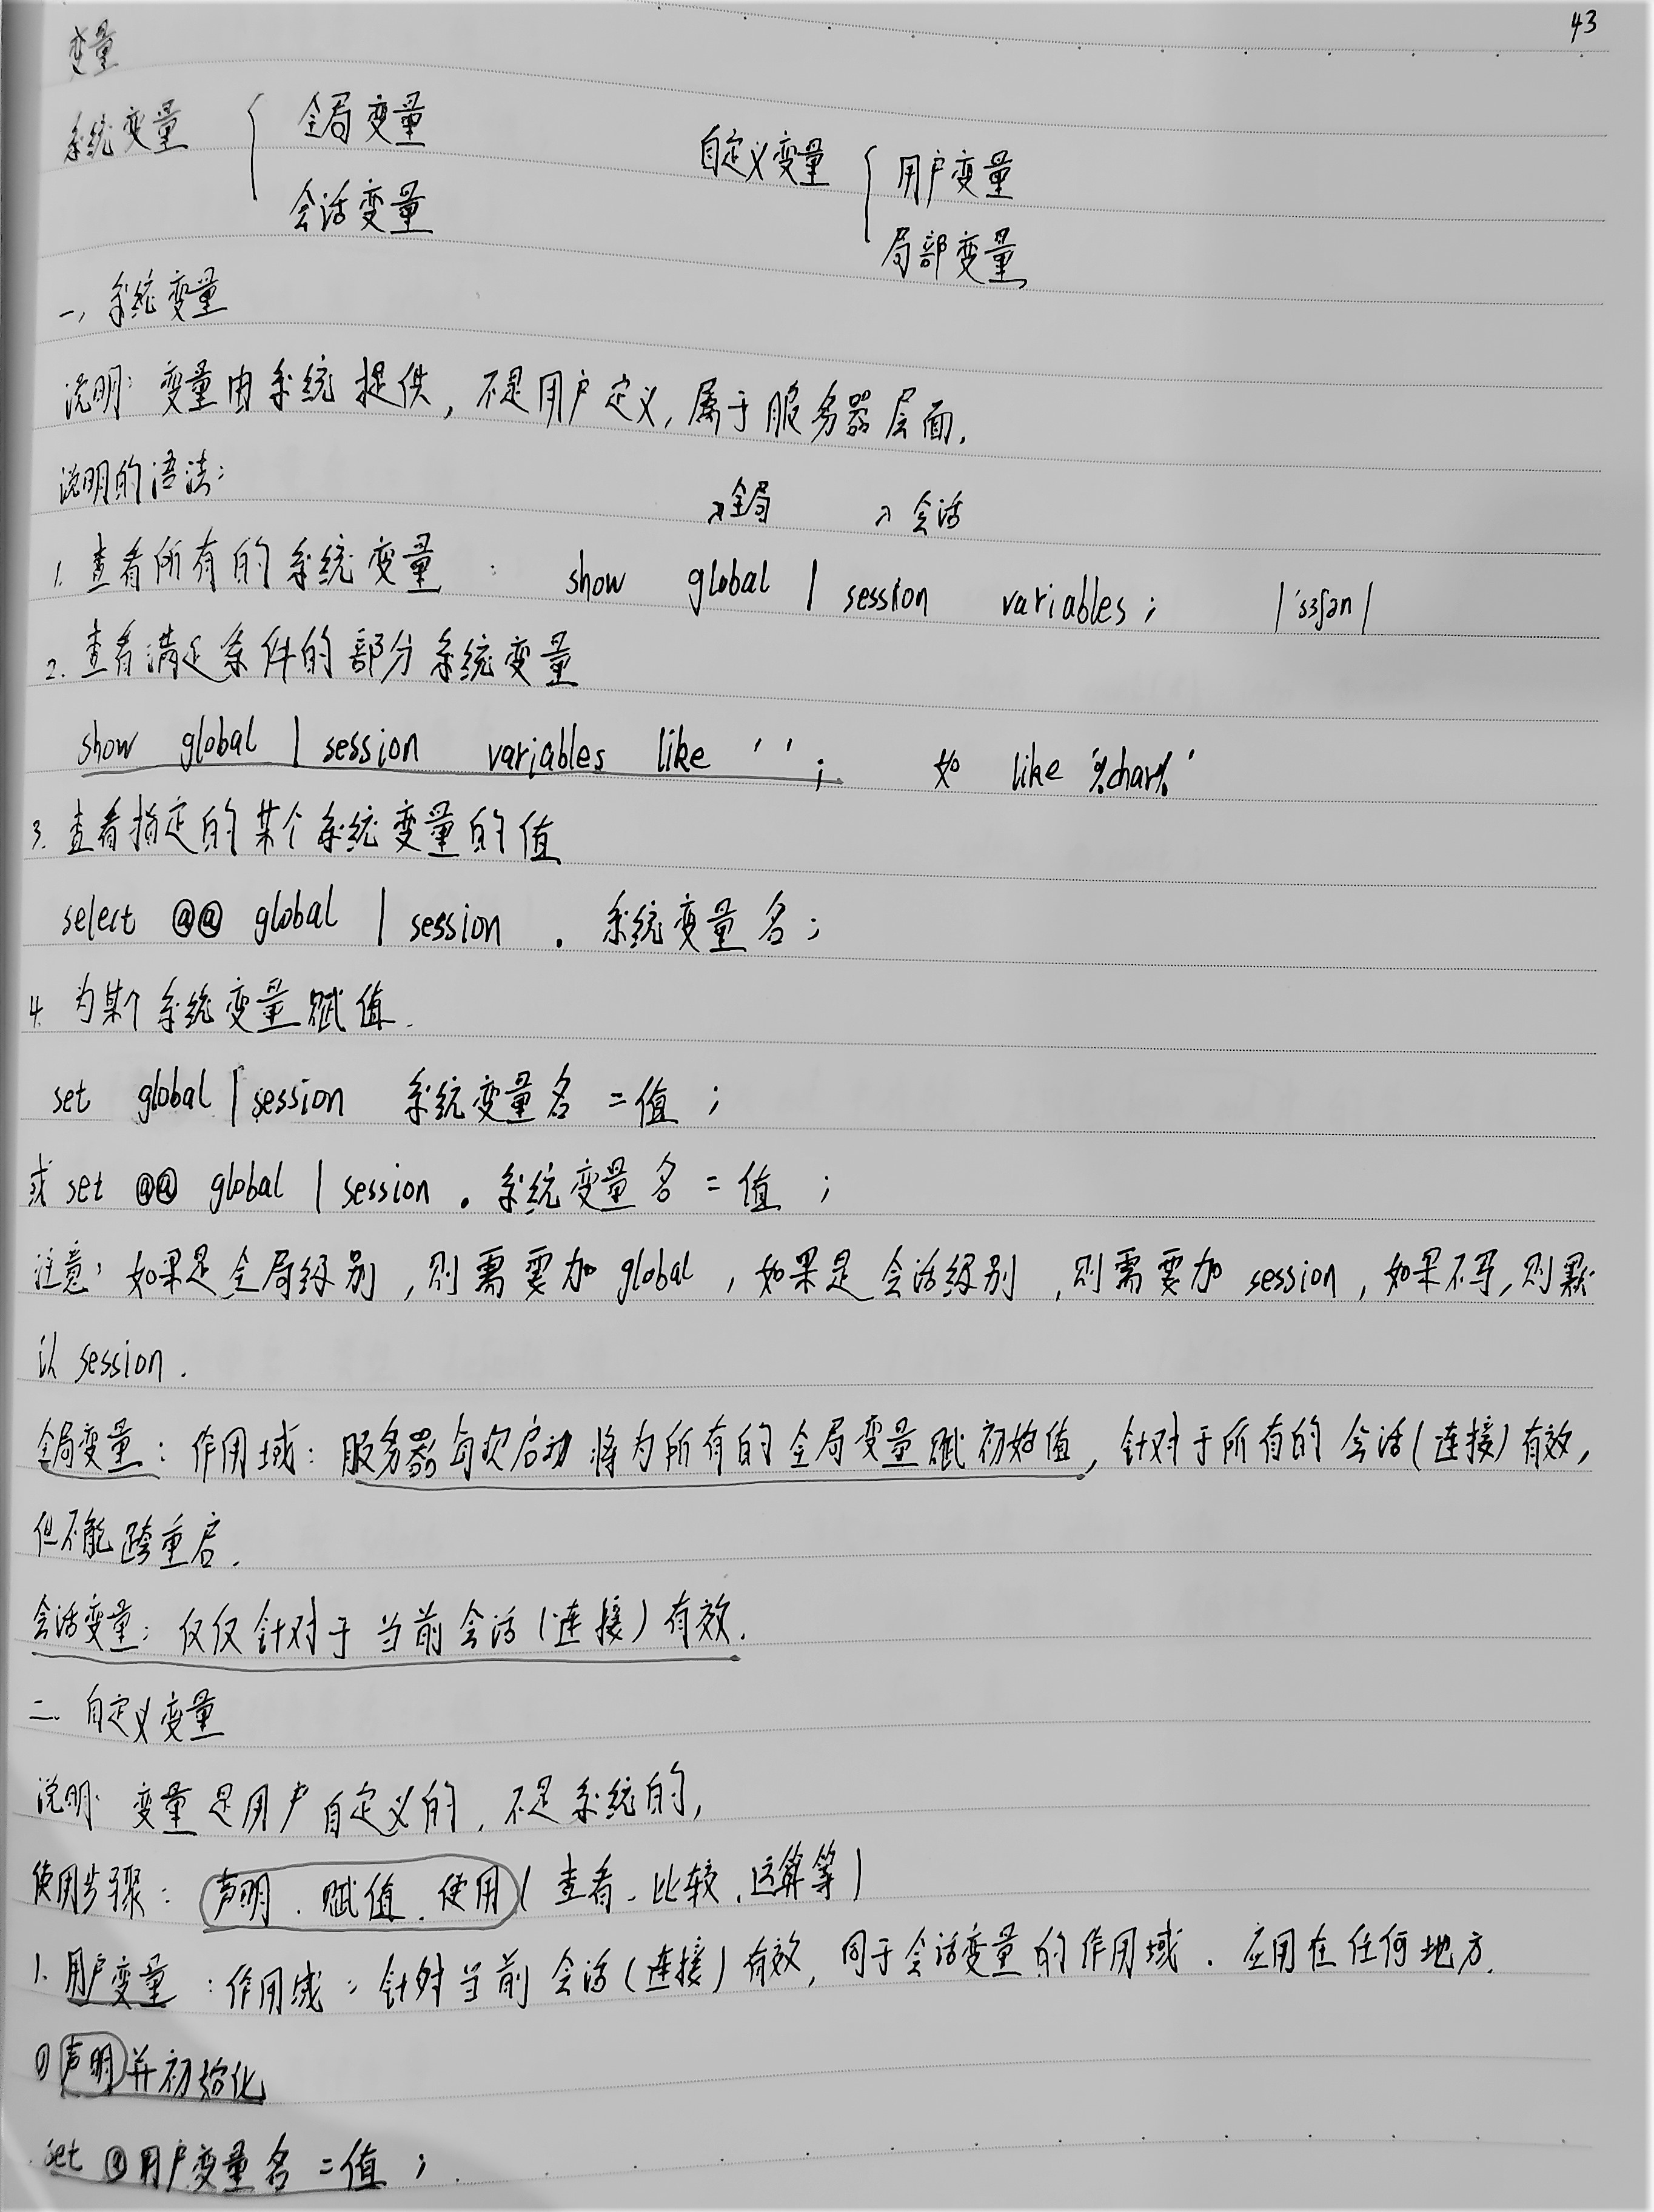 43
变量
系统变量 { 全局变量
会话变量
自定义变量 { 用户变量
局部变量
一、系统变量
说明: 变量由系统提供, 不是用户定义, 属于服务器层面.
说明的语法:
→全局 →会话
1. 查看所有的系统变量 : show global | session variables; |'sɜʃən|
2. 查看满足条件的部分系统变量
show global | session variables like ' ' ; 如 like '%char%'
3. 查看指定的某个系统变量的值
select @@ global | session . 系统变量名;
4. 为某个系统变量赋值.
set global | session 系统变量名 = 值 ;
或 set @@ global | session . 系统变量名 = 值 ;
注意: 如果是全局级别, 则需要加 global, 如果是会话级别, 则需要加 session, 如果不写, 则默
认 session.
全局变量: 作用域: 服务器每次启动将为所有的全局变量赋初始值, 针对于所有的会话(连接)有效,
但不能跨重启.
会话变量: 仅仅针对于当前会话(连接)有效.
二、自定义变量
说明: 变量是用户自定义的, 不是系统的,
使用步骤: 声明、赋值、使用(查看、比较、运算等)
1. 用户变量: 作用域: 针对当前会话(连接)有效, 同于会话变量的作用域. 应用在任何地方.
① 声明并初始化
set @用户变量名 = 值 ;